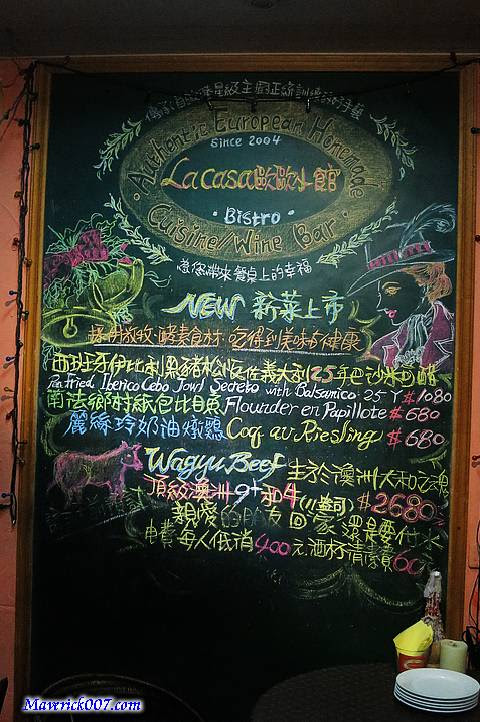 Authentic European Homemade
Since 2004
La Casa歐歐小館
Bistro
Cuisine/Wine Bar
為您帶來餐桌上的幸福
NEW 新菜上市
酵素食材 吃得到美味有健康
西班牙伊比利黑豬松
義大利25年巴沙米可醋
Pan fried Iberico Cebo Jowl Secreto with Balsamico 25Y $1080
南法鄉村紙包比目魚 Flounder en Papillote $680
麗絲玲奶油燉雞 Coq au Riesling $680
Wagyu Beef 生於澳洲大和之魂
頂級澳洲9+和牛 $2680
親愛的朋友
每人低消400元 酒杯清潔費60
Maverick007.com